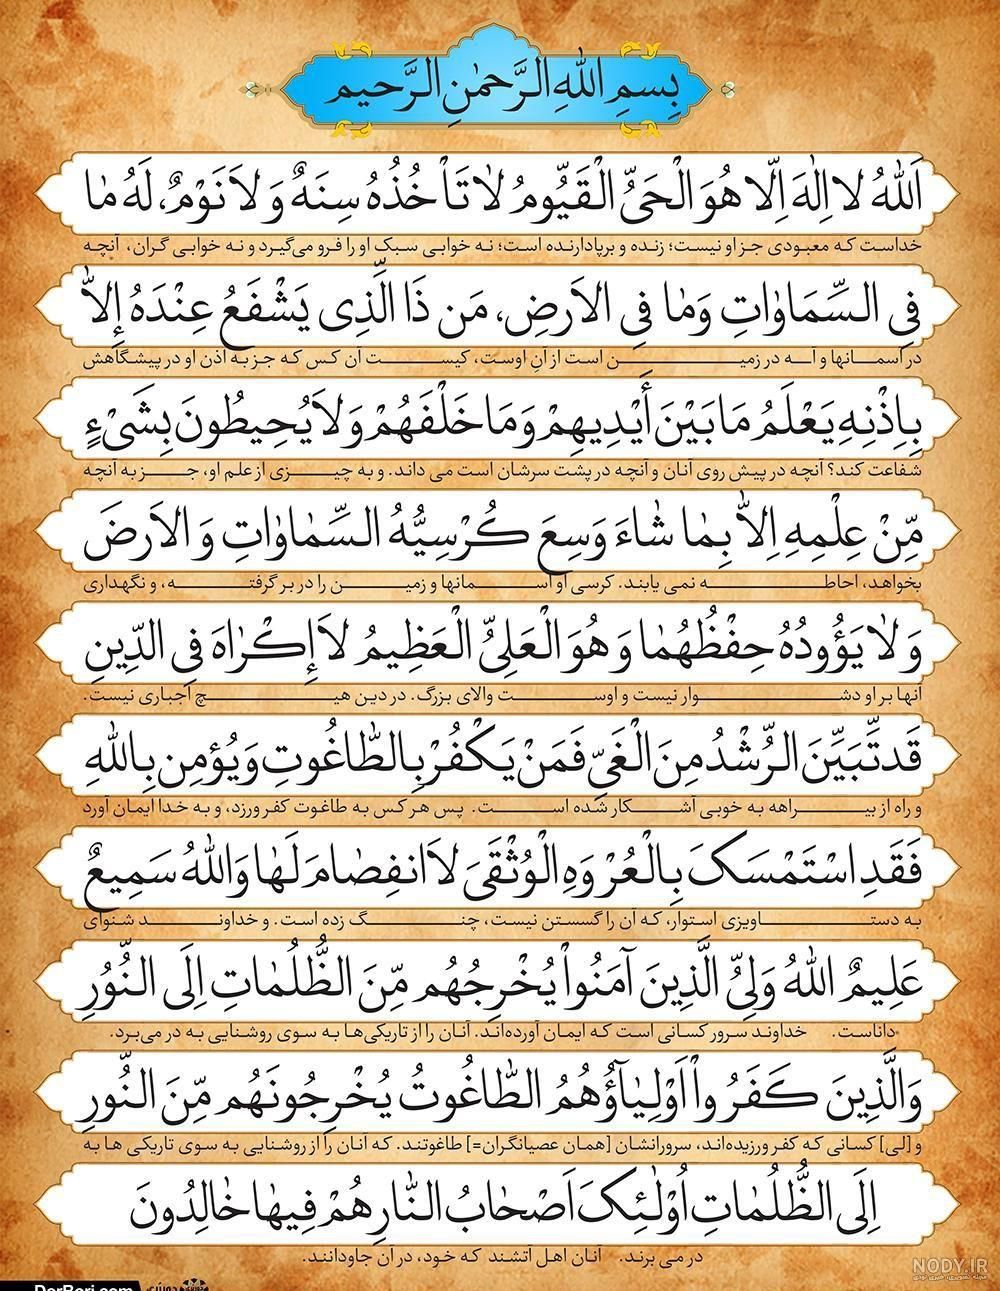 بِسمِ اللهِ الرَّحمٰنِ الرَّحیم
اَللهُ لا اِلٰهَ اِلّا هُوَ الْحَیُّ الْقَیُّومُ لاٰ تَأْخُذُهُ سِنَهٌ وَ لاَ نَوْمٌ، لَهُ مٰا
خداست که معبودی جز او نیست؛ زنده و برپادارنده است؛ نه خوابی سبک او را فرو می‌گیرد و نه خوابی گران، آنچه
فِی السِّمَاوٰاتِ وَمٰا فِی الاَرضِ، مَن ذَا الَّذِی یَشْفَعُ عِنْدَهُ إِلاّٰ
در آسمانها و آنچه در زمیـــن است از آنِ اوست، کیســـت آن کس که جز به اذن او در پیشگاهش
بِاِذْنِهِ یَعْلَمُ مَا بَیْنَ أَیْدِیهِمْ وَمَا خَلْفَهُمْ وَلاَ یُحِیطُونَ بِشَیْءٍ
شفاعت کند؟ آنچه در پیش روی آنان و آنچه در پشت سرشان است می داند. و به چیـــزی از علم او، جـــز به آنچه
مِّنْ عِلْمِهِ اِلاّٰ بِمٰا شٰاءَ وَسِعَ کُرْسِیُّهُ السِّمٰاوٰاتِ وَ الاَرضَ
بخواهد، احاطـــه نمی یابند. کرسی او آســـمانها و زمیـــن را در بر گرفتـــه، و نگهداری
وَ لاٰ یَؤُودُهُ حِفْظُهُمٰا وَ هُوَ الْعَلِیُّ الْعَظِیمُ لاَ إِکْرَاهَ فِی الدِّینِ
آنها بر او دشـــوار نیست و اوســـت والای بزرگ. در دین هیـــچ اجباری نیست.
قَد تَّبَیَّنَ الرُّشْدُ مِنَ الْغَیِّ فَمَنْ یَکْفُرْ بِالطّٰاغُوتِ وَیُؤمِن بِاللهِ
و راه از بیـــراهه به خوبی آشـــکار شده اســـت. پس هر کس به طاغوت کفر ورزد، و به خدا ایمان آورد
فَقَدِ اسْتَمْسَکَ بِالْعُرْوَهِ الْوُثْقَیَ لاَ انفِصٰامَ لَهٰا وَاللهُ سَمِیعٌ
به دستـــاویزی استوار، که آن را گسستن نیست، چنـــگ زده است. و خداونـــد شنوای
عَلِیمٌ اللهُ وَلِیُّ الَّذِینَ آمَنُواْ یُخْرِجُهُم مِّنَ الظُّلُمَاتِ اِلَی النُّوُرِ
داناست. خداوند سرور کسانی است که ایمان آورده‌اند. آنان را از تاریکی‌ها به سوی روشنایی به در می‌برد.
وَالَّذِینَ کَفَرُواْ اَوْلِیٰآؤُهُمُ الطّٰاغُوتُ یُخْرِجُونَهُم مِّنَ النُّورِ
و [لی] کسانی که کفر ورزیده‌اند، سرورانشان [همان عصیانگران=] طاغوتند. که آنان را از روشنایی به سوی تاریکی ها به
اِلَی الظُّلُمٰاتِ اُوْلٰئِکَ اَصْحٰابُ النّٰارِ هُمْ فِیهٰا خٰالِدُونَ
در می برند. آنان اهل آتشند که خود، در آن جاودانند.
NODY.IR